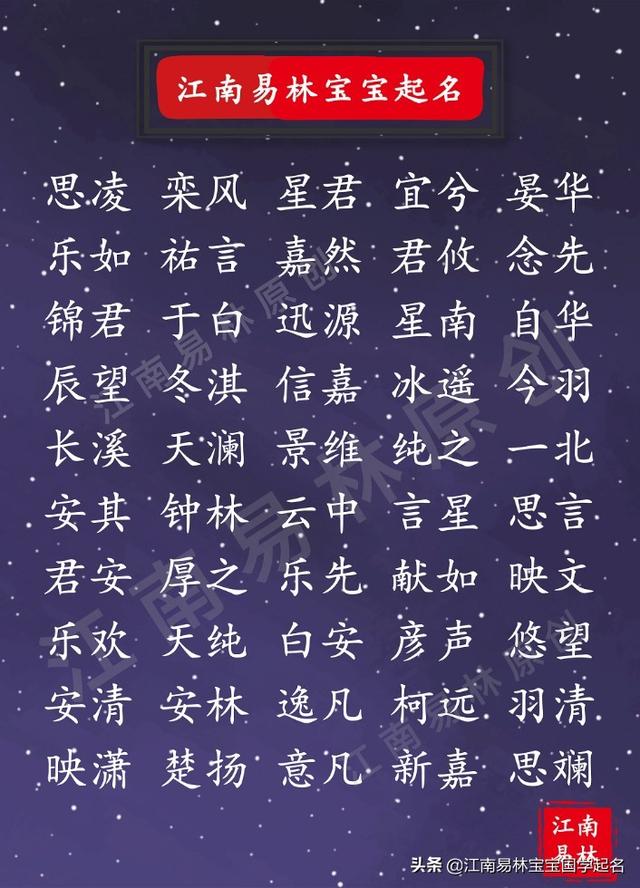 江南易林宝宝起名
思凌 栾风 星君 宜兮 晏华
乐如 祐言 嘉然 君攸 念先
锦君 于白 迅源 星南 自华
辰望 冬淇 信嘉 冰遥 今羽
长溪 天澜 景维 纯之 一北
安其 钟林 云中 言星 思言
君安 厚之 乐先 献如 映文
乐欢 天纯 白安 彦声 悠望
安清 安林 逸凡 柯远 羽清
映潇 楚扬 意凡 新嘉 思斓
江南易林原创
江南易林原创
江南易林原创
江南
易林
头条 @江南易林宝宝国学起名